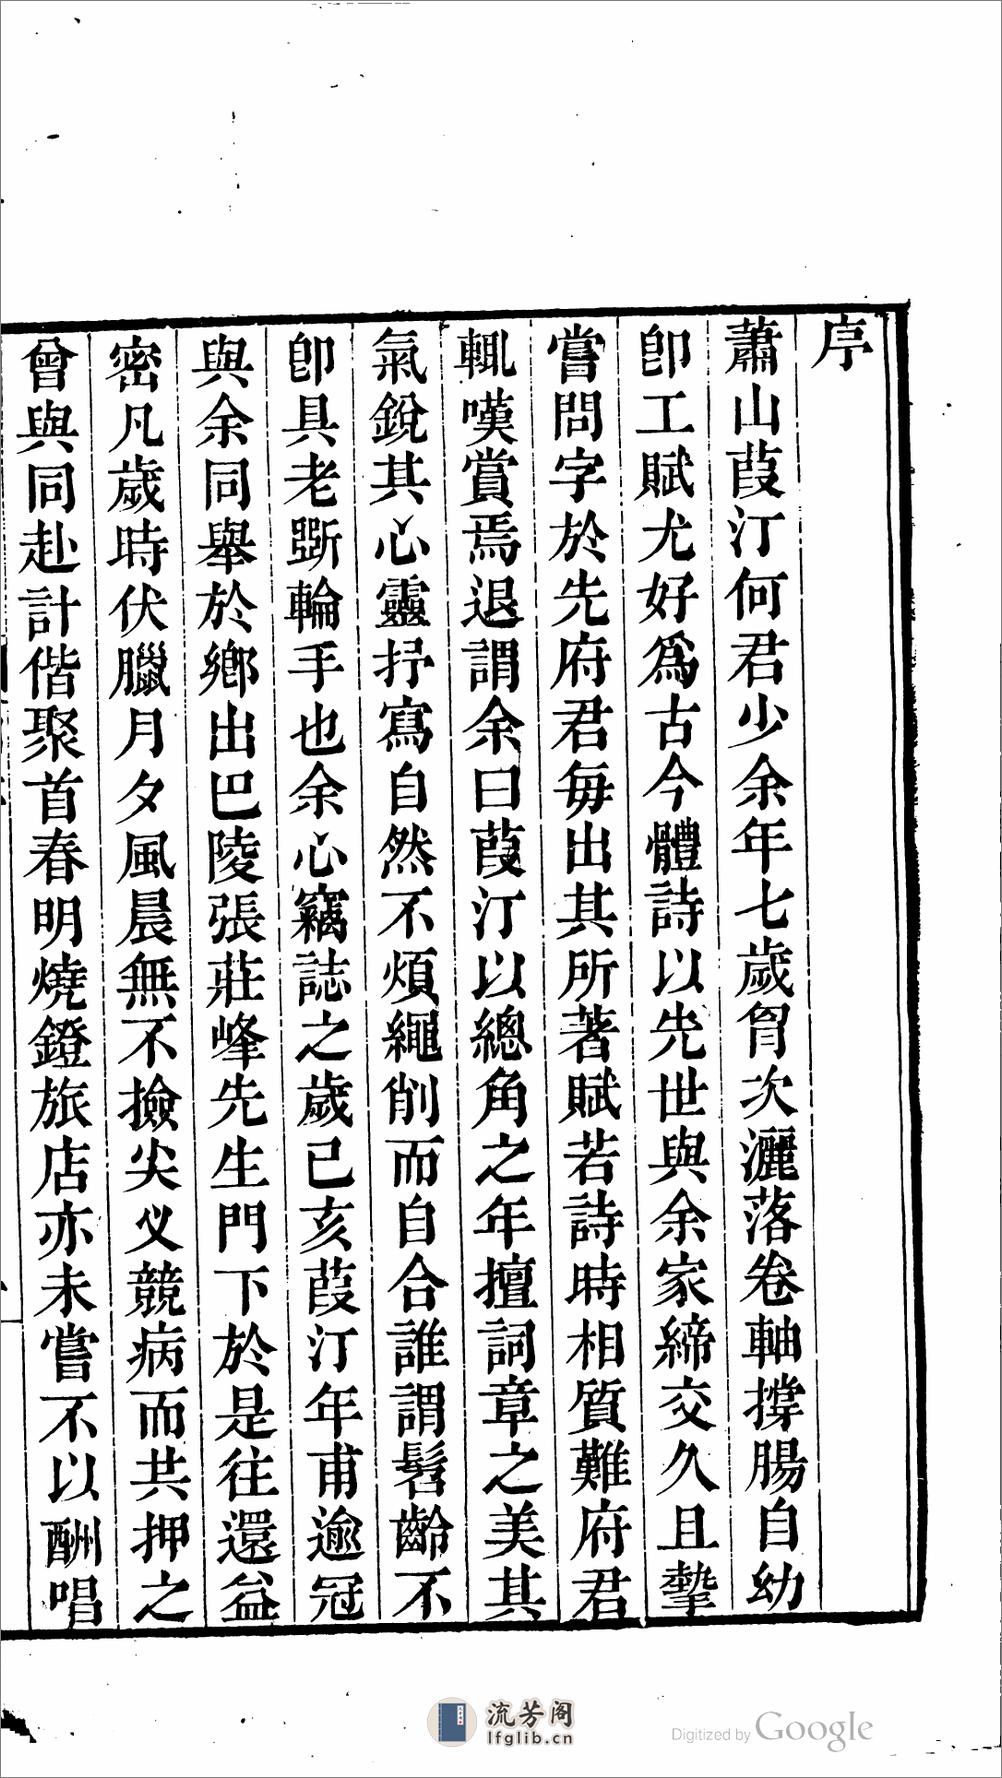 序
蕭山葭汀何君少余年七歲胷次灑落卷軸撐腸自幼
卽工賦尤好爲古今體詩以先世與余家締交久且摯
嘗問字於先府君每出其所著賦若詩時相質難府君
輒嘆賞焉退謂余曰葭汀以總角之年擅詞章之美其
氣銳其心靈抒寫自然不煩繩削而自合誰謂髫齡不
卽具老斲輪手也余心竊誌之歲己亥葭汀年甫逾冠
與余同舉於鄉出巴陵張莊峰先生門下於是往還益
密凡歲時伏臘月夕風晨無不撿尖义競病而共押之
曾與同赴計偕聚首春明燒鐙旅店亦未嘗不以酬唱
流芳阁
lfglib.cn
Digitized by Google